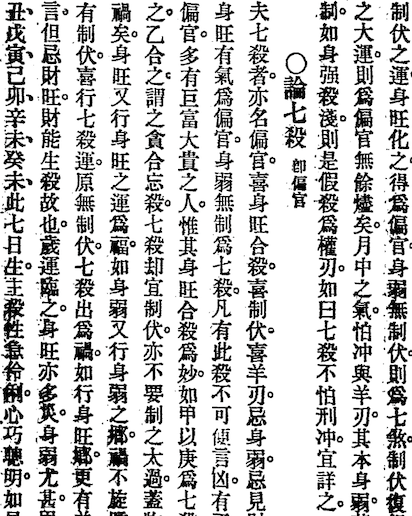 制伏之運身旺化之得爲偏官無制伏則爲七煞制伏復
之大運則爲偏官無餘燼矣。月中之氣怕冲與羊刃其本身弱
制。如身强殺淺則是假殺爲權刃如曰七殺不怕刑冲宜詳之。
〇論七殺 卽偏官
夫七殺者亦名偏官喜身旺合殺喜制伏喜羊刃忌身弱忌見
身旺有氣爲偏官身弱無制爲七殺凡有此殺不可便言凶有
偏官多有巨富大貴之人惟其身旺合殺爲妙如甲以庚爲七
之乙合之謂之貪合忘殺七殺却宜制伏亦不要制之太過蓋
禍矣。身旺又行身旺之運爲福如身弱又行身弱之鄉禍不旋
有制伏喜行七殺運原無制伏七殺出爲禍如行身旺鄉更有
言但忌財旺財能生殺故也歲運臨之身旺亦多災身弱尤甚
丑戊寅己卯辛未癸未此七日生主殺性急伶俐心巧聰明如